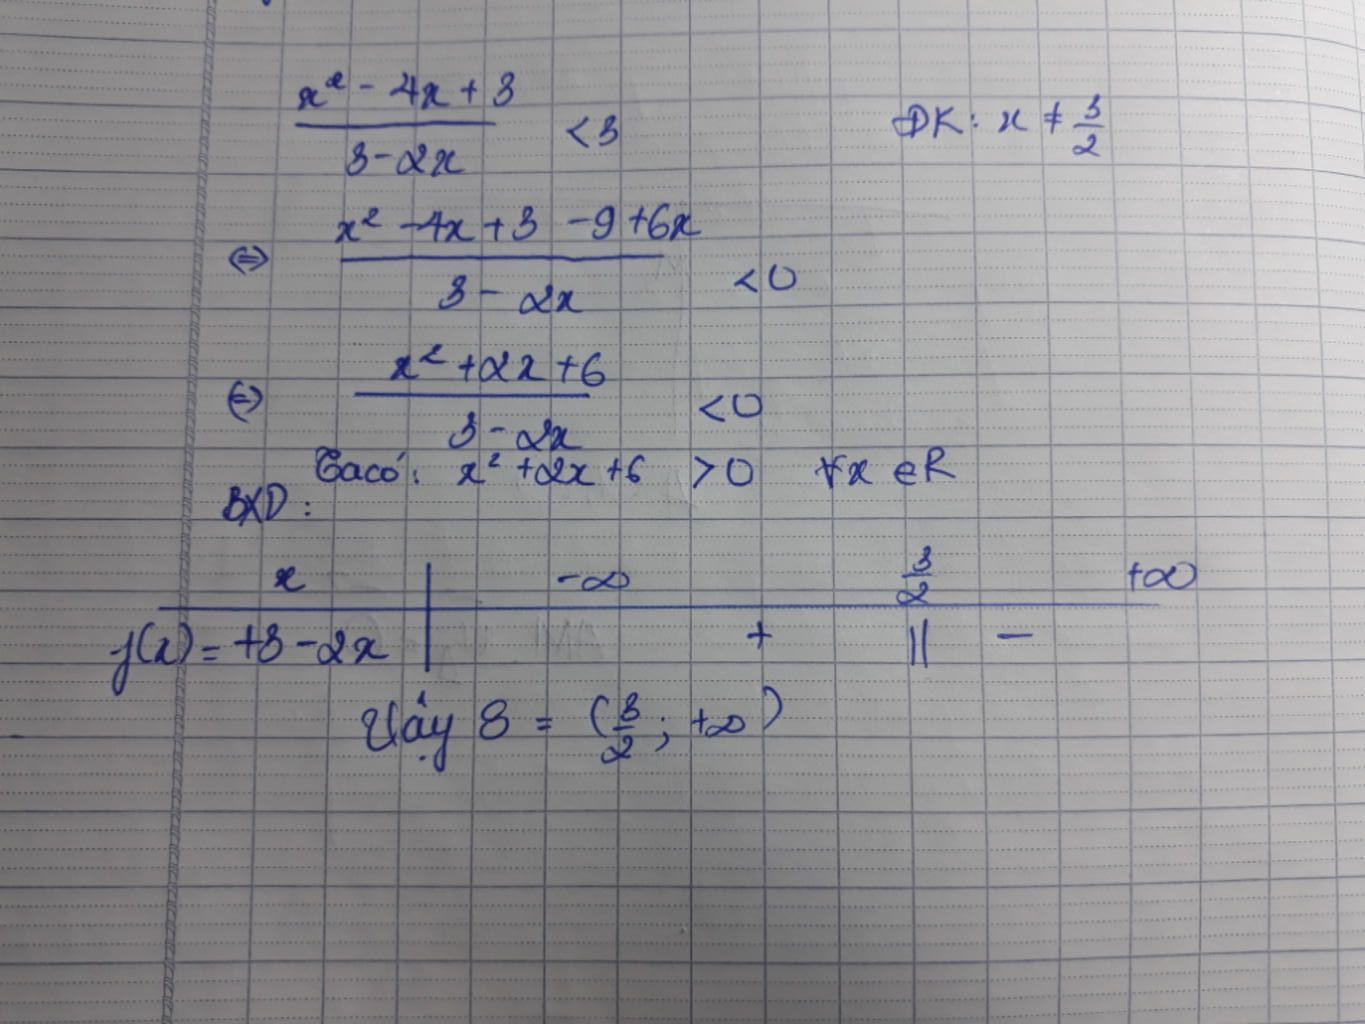 x² - 4x + 3 / 3 - 2x < 3 ĐK: x ≠ 3/2
⇔ x² - 4x + 3 - 9 + 6x / 3 - 2x < 0
⇔ x² + 2x + 6 / 3 - 2x < 0
Ta có: x² + 2x + 6 > 0 ∀x ∈ R
BXD:
x | -∞ 3/2 +∞
f(x) = +3 - 2x | + || -
Vậy S = (3/2 ; +∞)